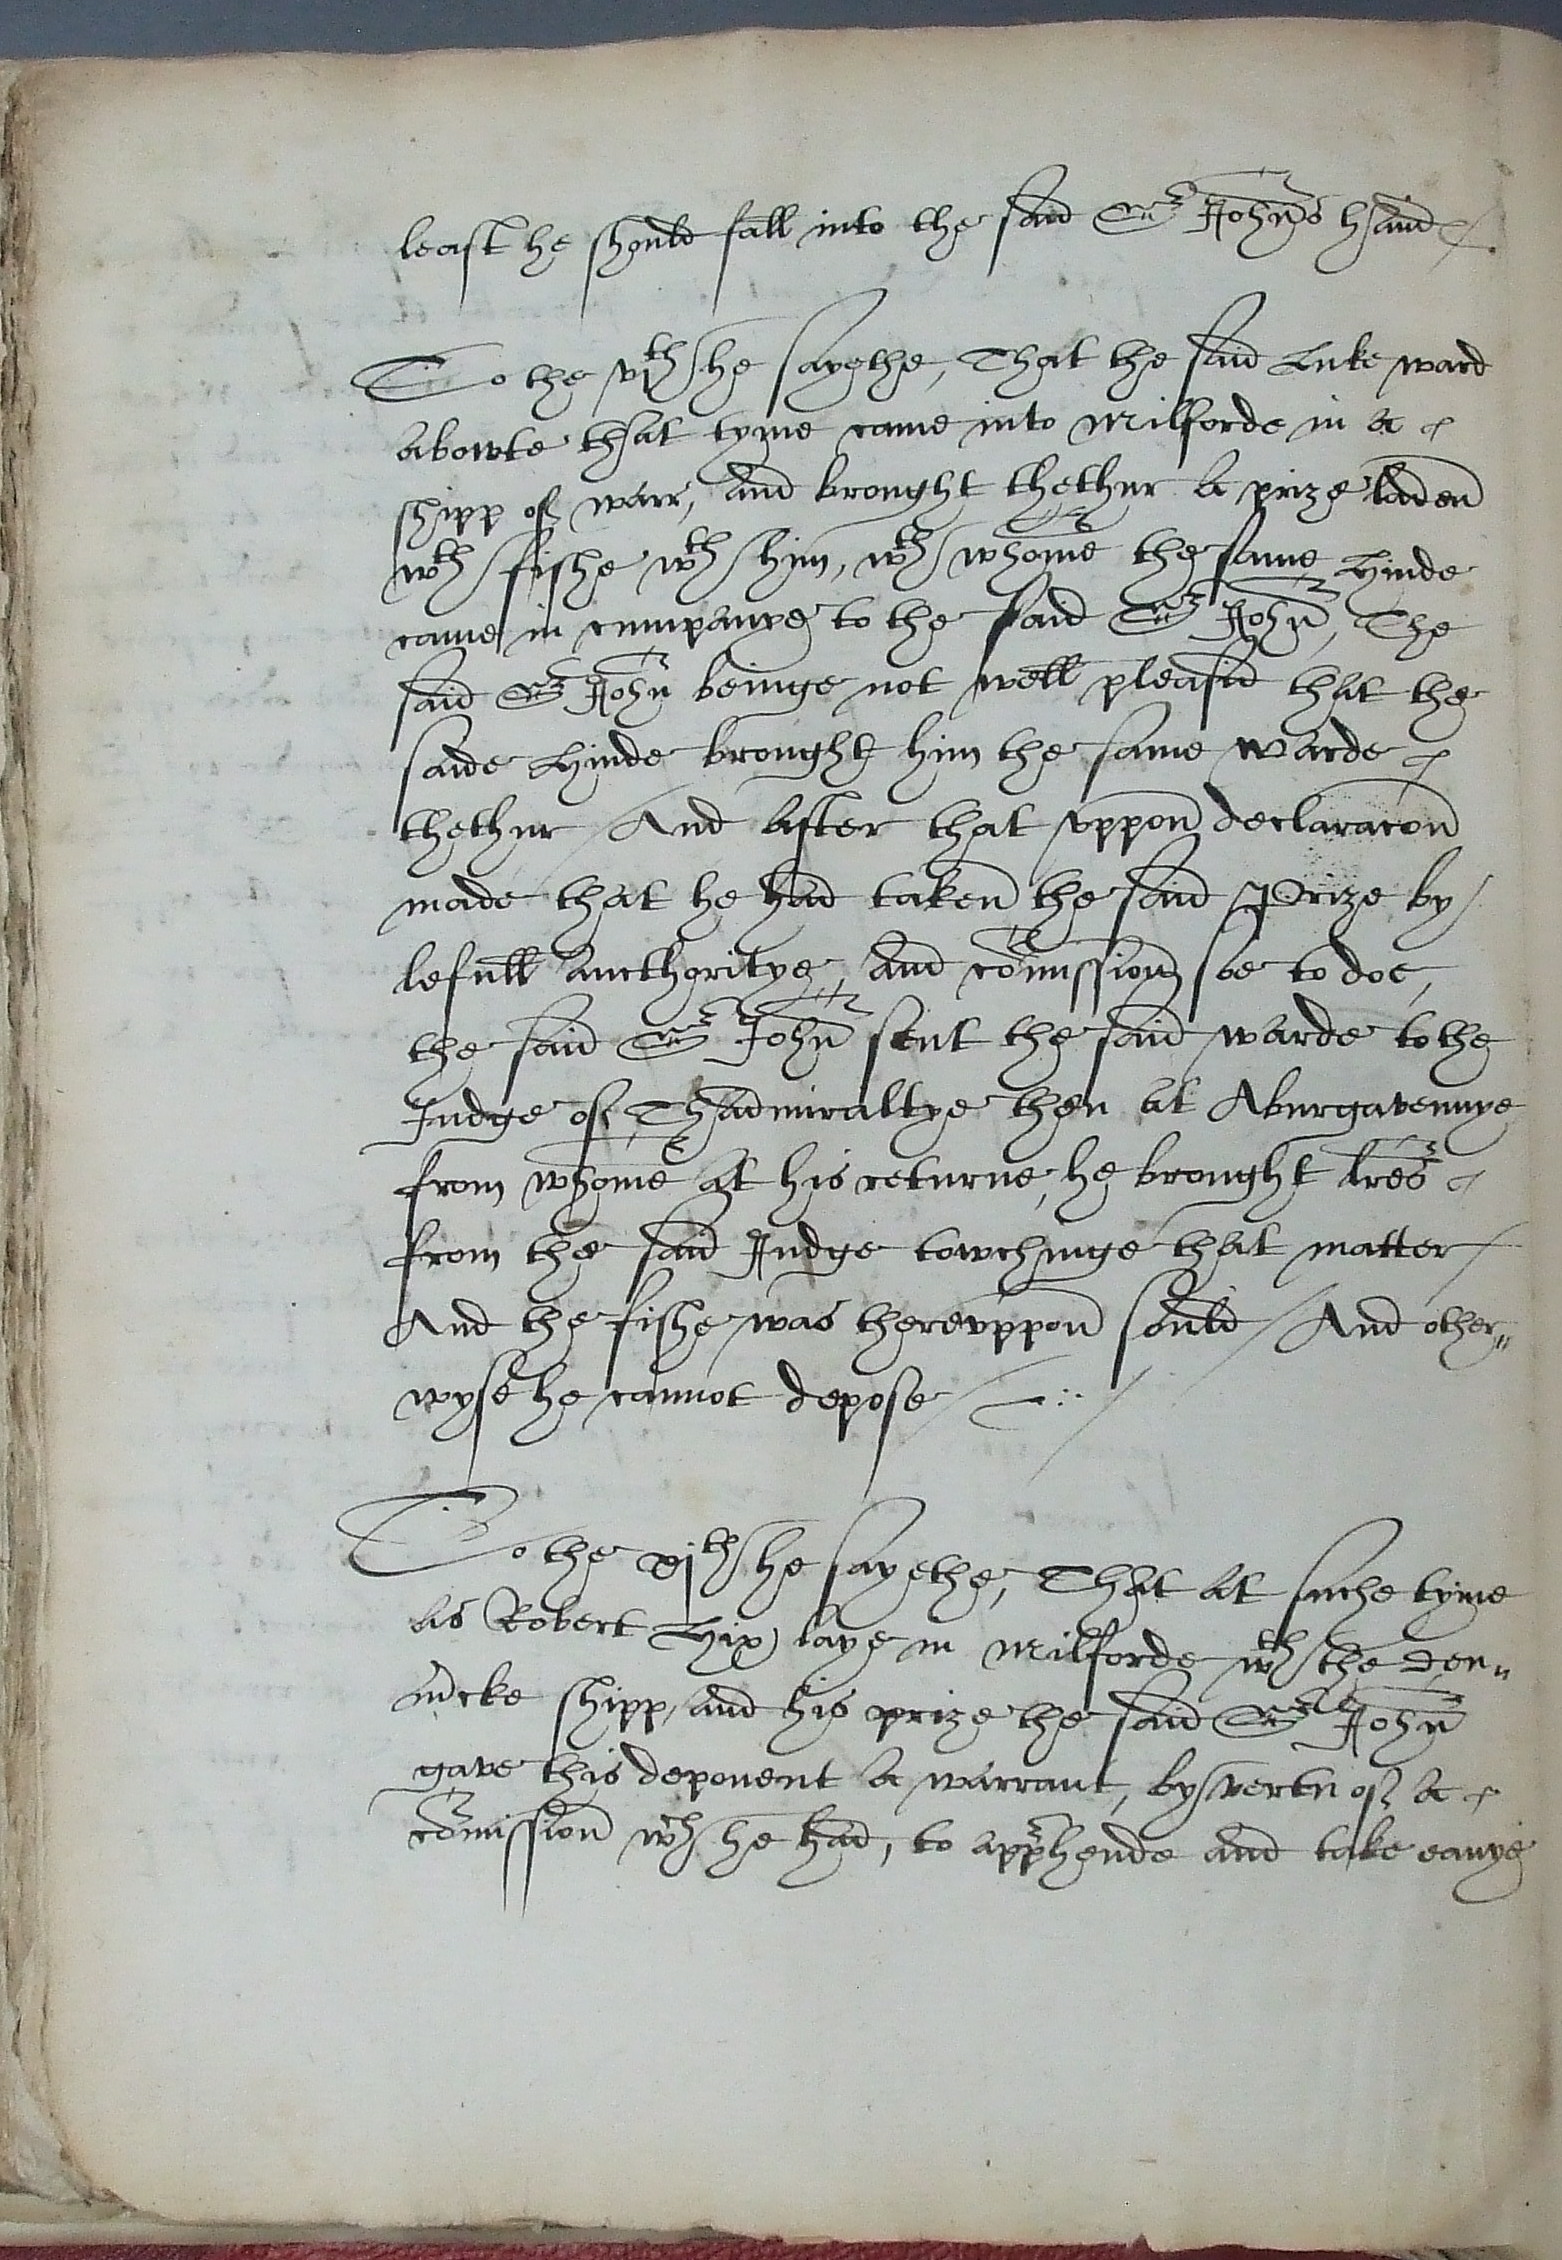 least he should fall into the said Sr Johns hand
To the vth he sayethe, That the said Luke ward
abowte that tyme came into Milforde in a
shipp of warr, and brought thethur a prize laden
wth fishe wth him, wth whome the same Hinde
came in cumpanye to the said Sr John, The
said Sr John beinge not well pleasid that the
saide Hinde brought him the same Warde
thethur / And after that vppon declaracon
made that he had taken the said Prize by
lefull aucthoritye, and comission soe to doe,
the said Sr John sent the said warde to the
Judge of Thadmiraltye then at Aburgavennye
from whome at his returne, he brought lres
from the said Judge towchinge that matter /
And the fishe was therevppon sould / And other„
wyse he cannot depose /
To the xjth he sayethe, That at suche tyme
as Robert Hix laye in Milforde wth the Den„
mcke shipp, and his prize the said Sr John
gave this deponent a warrant, by vertu of a
comission wch he had, to apprhende and take eanye